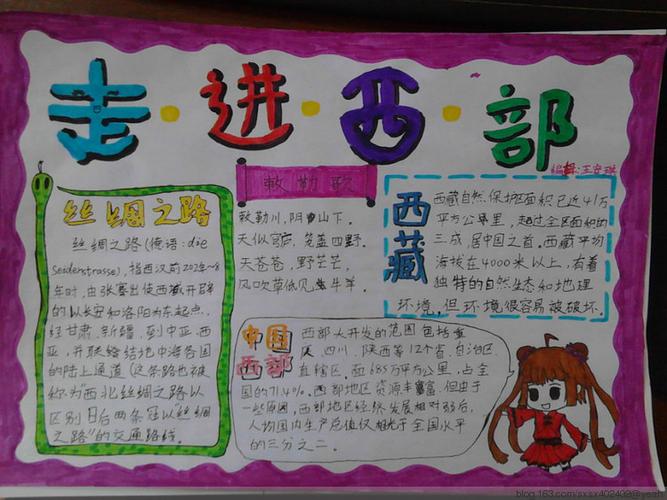 走·进·西·部
编辑:王安琪
丝绸之路
丝绸之路(德语:die
Seidenstrasse),指西汉前202年~8
年时,由张骞出使西域开辟
的以长安和洛阳为东起点,
经甘肃、新疆,到中亚、西
亚,并联络结地中海各国
的陆上通道(这条路也被
称为"西北丝绸之路以
区别日后两条冠以丝绸
之路"的交通路线。
敕勒歌
敕勒川,阴山下。
天似穹庐,笼盖四野。
天苍苍,野茫茫,
风吹草低见牛羊。
西藏
西藏自然保护区面积已达41万
平方公里,超过全区面积的
三成,居中国之首。西藏平均
海拔在4000米以上,有着
独特的自然生态和地理
环境,但环境很容易被破坏.
中国
西部
西部大开发的范围包括重
庆、四川、陕西等12个省、自治区、
直辖区,面685万平方公里,占全
国的71.4%。西部地区资源丰富,但由于
一些原因,西部地区经济发展相对弱后,
人均国内生产总值仅相当于全国水平
的三分之二。